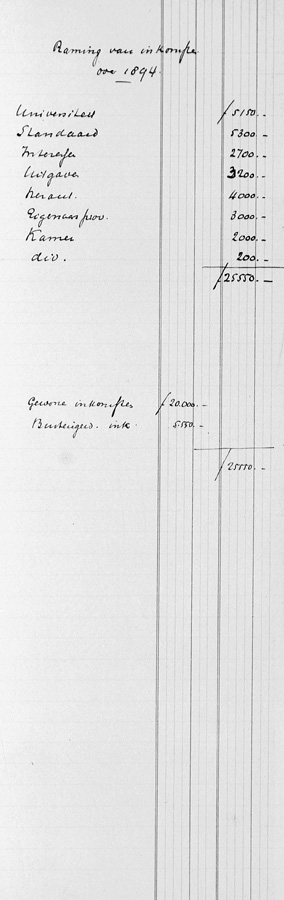 Raming van inkomsten
over 1894.
Universiteit ƒ 5150.-
Standaard 5300.-
Interest 2700.-
Uitgaven 3200.-
Heraut. 4000.-
Eigenaarsprov. 3000.-
Kamer 2000.-
div. 200.-
ƒ 25550.-
Gewone inkomsten ƒ 20.000.-
Buitengew. ink. 5550.-
ƒ 25550.-